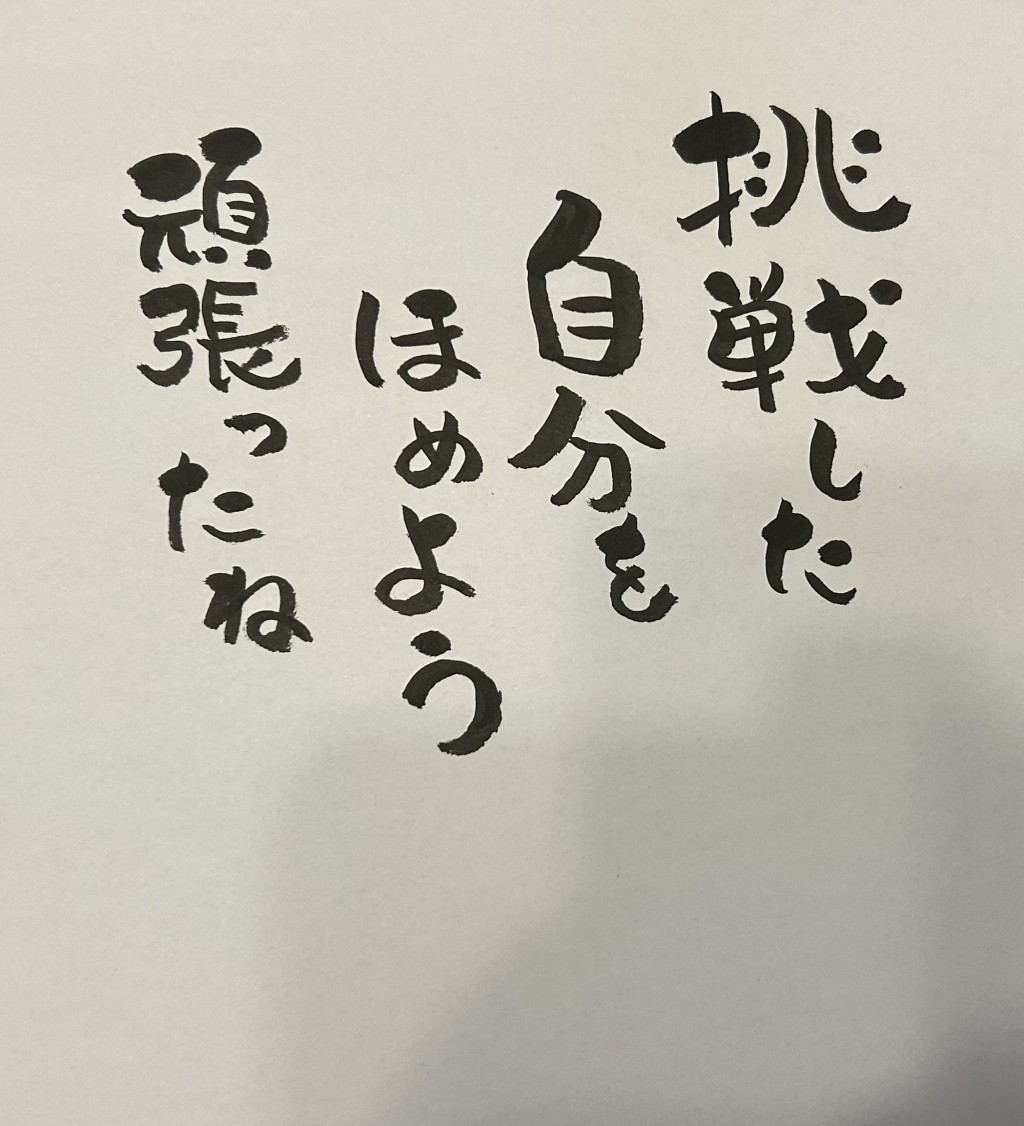 挑戦した
自分を
ほめよう
頑張ったね